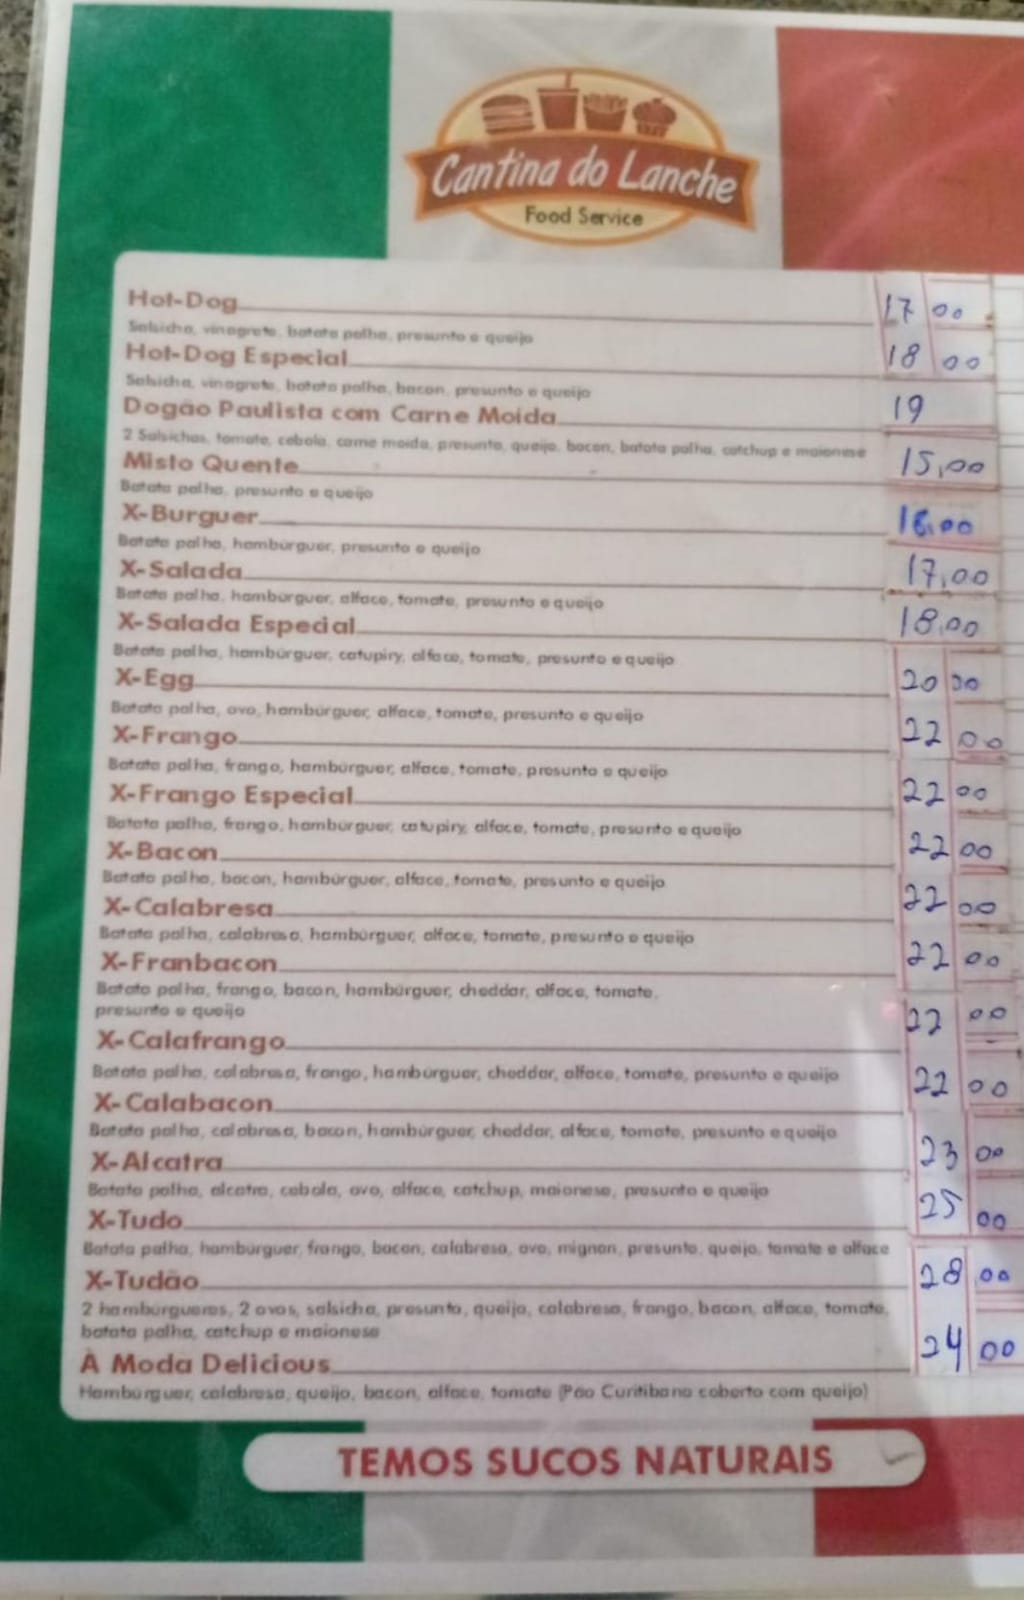 Cantina do Lanche
Food Service
Hot-Dog 17 00
Salsicha, vinagrete, batata palha, presunto e queijo
Hot-Dog Especial 18 00
Salsicha, vinagrete, batata palha, bacon, presunto e queijo
Dogão Paulista com Carne Moída 19
2 Salsichas, tomate, cebola, carne moída, presunto, queijo, bacon, batata palha, catchup e maionese
Misto Quente 15,00
Batata palha, presunto e queijo
X-Burguer 16,00
Batata palha, hambúrguer, presunto e queijo
X-Salada 17,00
Batata palha, hambúrguer, alface, tomate, presunto e queijo
X-Salada Especial 18,00
Batata palha, hambúrguer, catupiry, alface, tomate, presunto e queijo
X-Egg 20 00
Batata palha, ovo, hambúrguer, alface, tomate, presunto e queijo
X-Frango 22 00
Batata palha, frango, hambúrguer, alface, tomate, presunto e queijo
X-Frango Especial 22 00
Batata palha, frango, hambúrguer, catupiry, alface, tomate, presunto e queijo
X-Bacon 22 00
Batata palha, bacon, hambúrguer, alface, tomate, presunto e queijo
X-Calabresa 22 00
Batata palha, calabresa, hambúrguer, alface, tomate, presunto e queijo
X-Franbacon 22 00
Batata palha, frango, bacon, hambúrguer, cheddar, alface, tomate,
presunto e queijo
X-Calafrango 22 00
Batata palha, calabresa, frango, hambúrguer, cheddar, alface, tomate, presunto e queijo
X-Calabacon 22 00
Batata palha, calabresa, bacon, hambúrguer, cheddar, alface, tomate, presunto e queijo
X-Alcatra 23 00
Batata palha, alcatra, cebola, ovo, alface, catchup, maionese, presunto e queijo
X-Tudo 25 00
Batata palha, hambúrguer, frango, bacon, calabresa, ovo, mignon, presunto, queijo, tomate e alface
X-Tudão 28,00
2 hambúrgueres, 2 ovos, salsicha, presunto, queijo, calabresa, frango, bacon, alface, tomate,
batata palha, catchup e maionese
À Moda Delicious 24 00
Hambúrguer, calabresa, queijo, bacon, alface, tomate (Pão Curitibano coberto com queijo)
TEMOS SUCOS NATURAIS